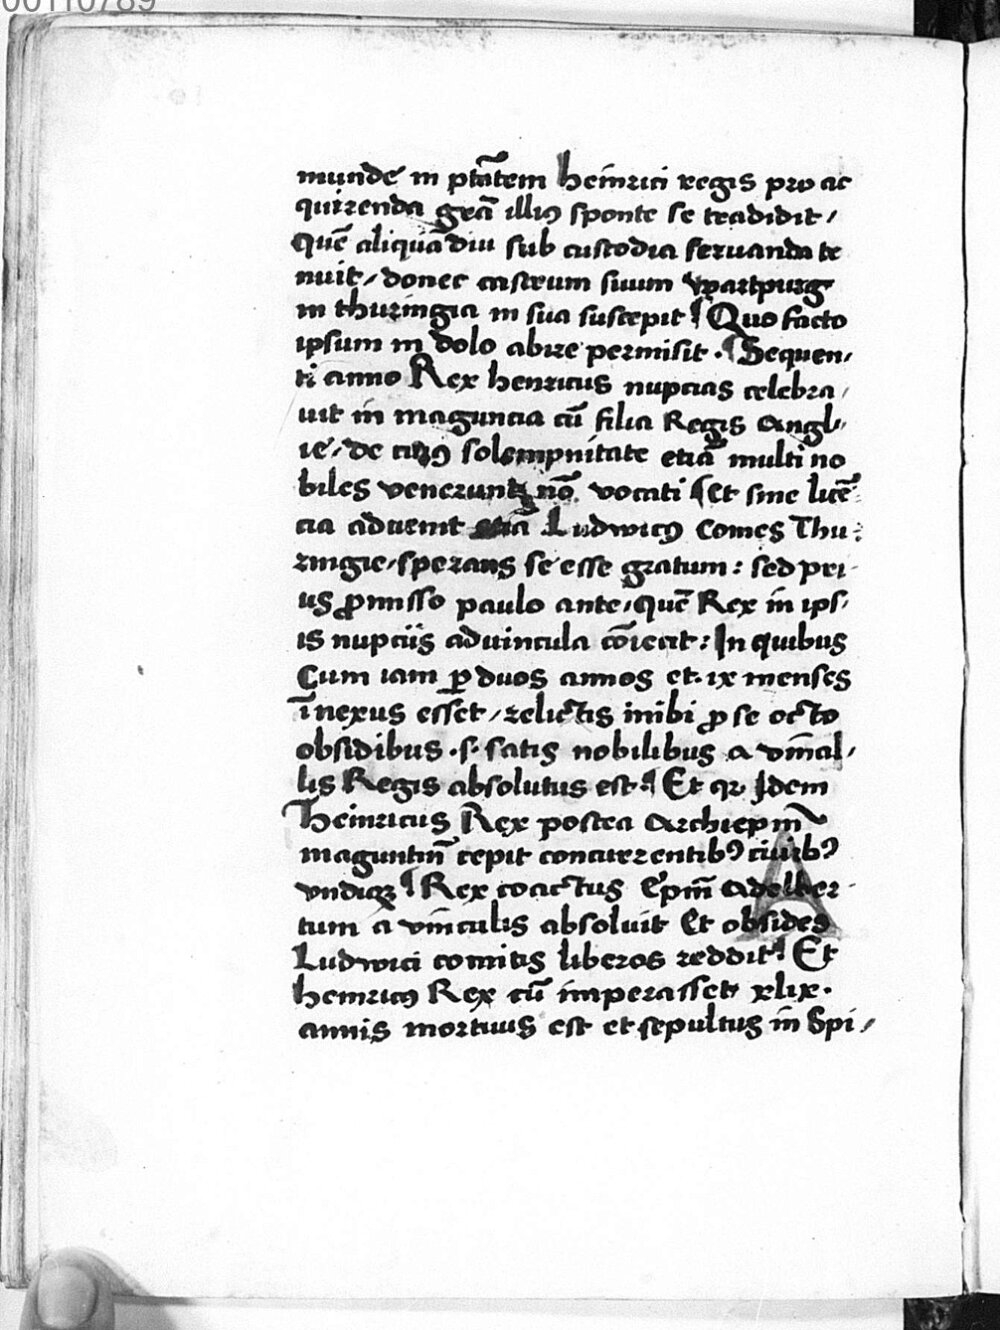 00110789
munde in ptãtem heinrici regis pro ac
quirenda grã illiꝰ sponte se tradidit /
Quē aliquādiu sub custodia seruanda te
nuit / donec castrum suum wartpurg
in thuringia in sua suscepit ¶ Quo facto
ipsum in dolo abire permisit . ¶ Sequen /
ti anno Rex henricus nupcias celebra /
uit in maguncia cū filia Regis Angl /
ie / de cuiꝰ solempnitate etiā multi no
biles venerunt nō vocati ¶ et sine licē
cia aduenit etiā Ludwicꝰ Comes Thu :
ringie / sperans se esse gratum : sed pri /
us ꝓmisso paulo ante / quē Rex in ips /
is nupciis aduincula cōiecit : In quibus
Cum iam ꝑ duos annos et ix menses
īnexus esset / relictis inibi ꝓ se octo
obsidibus . s . satis nobilibus a vin̄cul /
lis Regis absolutus est ¶ Et qꝛ Idem
Heinricus Rex postea Archiepm̄
maguntin̄ cepit concurrentibꝰ ciuibꝰ
vndiqꝫ ¶ Rex coactus Epm̄ Adelber
tum a vinculis absoluit Et obsides
Ludwici comitis liberos reddit ¶ Et
heinricꝰ Rex cū imperasset xlix .
annis mortuus est et sepultus in Spi /